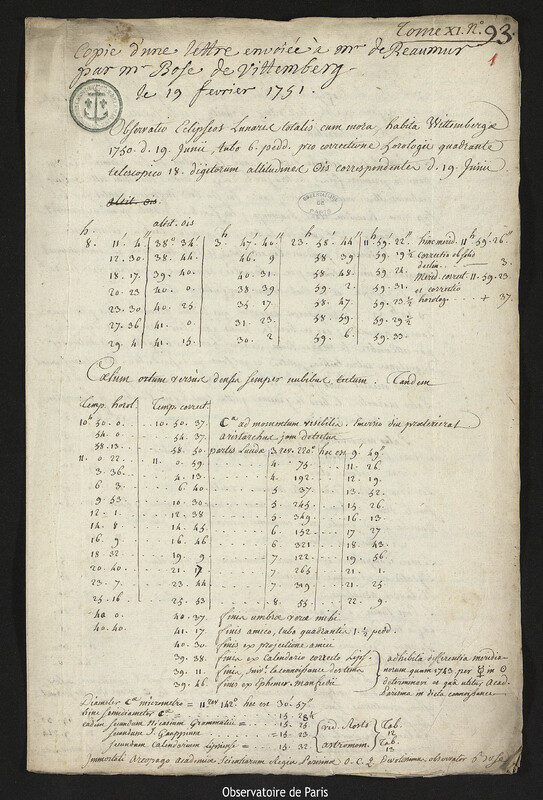 Tome XI. N.° 93.
1
Copie d'une lettre envoiée à Mr de Reaumur
par Mr Bose de Vittemberg
le 19 fevrier 1751.
Observatio Eclipseos Lunaris totalis cum mora habita Wittembergæ
1750. d. 19. Junii, tubo 6. pedd. pro correctione horologii quadrante
telescopico 18. digitorum altitudines ☉is correspondentes d. 19. Junii
OBSERVATOIRE DE PARIS
altit. ☉is
h.
8. 11' 4" 38° 34' 3 h 47' 40" 23. 58' 44" 11 h 59' 22" hinc merid. 11 h 59' 26"
12. 30. 38. 44. 46. 9 58. 39 59. 19½ correctio ob ☉lis
18. 17. 39. 40. 40. 31. 58. 48. 59. 24. declin. 3.
20. 23 40. 0. 38. 39 59. 2. 59. 31. Merid. correct. 11. 59. 23.
23. 30 40. 25 35. 17 58. 47. 59. 23½ et correctio
27. 36 41. 0 31. 23. 58. 59. 59. 29½ horolog. + 37.
29. 4 41. 15. 30. 2 59. 6. 59. 33.
Cælum ortum versus densis semper nubibus tectum. Tandem
Temp. horol. Temp. correct.
10 h 50. 0. 10. 50. 37. ad momentum visibilis. Emersio diu præterierat
54. 0 54. 37. aristarchus jam detectus
58. 13. 58. 50 partes Lucidæ 3. rev. 220° hoc est 9' 49"
11. 0 22. 11. 0. 59 4. 75 11. 26
3. 36. 4. 13 4. 192 12. 19.
6. 3 6. 40 5. 37 13. 52.
9. 53 10. 30 5. 245 15. 26
12. 1. 12. 38 5. 349 16. 13
14. 8 14. 45 6 152 17. 27
16. 9 16. 46 6 321 18. 43
18. 32 19. 9 7 122 19. 56
20. 40. 21. 17 7 265 21. 1.
23. 7. 23. 44 7 319 21. 25
25. 16 25. 53 8 55 22. 9
40 0. 40. 37 finis umbræ veræ mihi
40. 40. 41. 17 finis amico, tubo quadrantis 1.½ pedd.
40. 30 finis ex projectione amici
39. 38. finis ex Calendario correcto Lips.
39. 11. finis, suiv.t la connoissance des tems
39. 46. finis ex Ephemer. Manfredii
adhibita differentia meridia-
norum quam 1743. per ☿ in ☉
determinavi et qua utitur Acad.
Parisina in dicta connoissance
Diameter micrometro = 11 rev 142° hoc est 30' 57"
hinc semidiameter = 15. 28½
eadem secundum Nicasium Grammatici = 15. 25
secundum J. Gauppium = 15 23
secundum Calendarium Lipsiense = 15. 32
vid. Rosts astronom. Tab. 12 Tab. 13.
Immortali Areopago Academiæ Scientiarum Regiæ Parisinæ D. C. Q Devotissimus observator
Observatoire de Paris